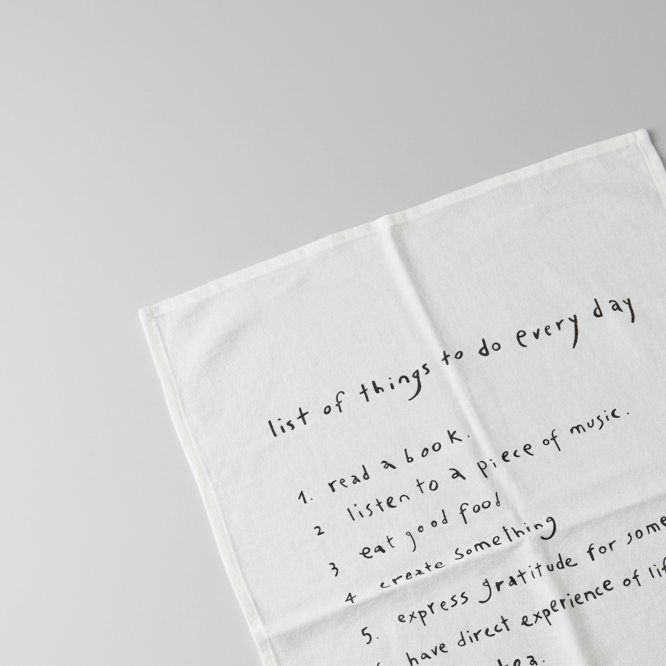 list of things to do every day
1. read a book.
2 listen to a piece of music.
3 eat good food
4 create something
5. express gratitude for some
have direct experience of lif